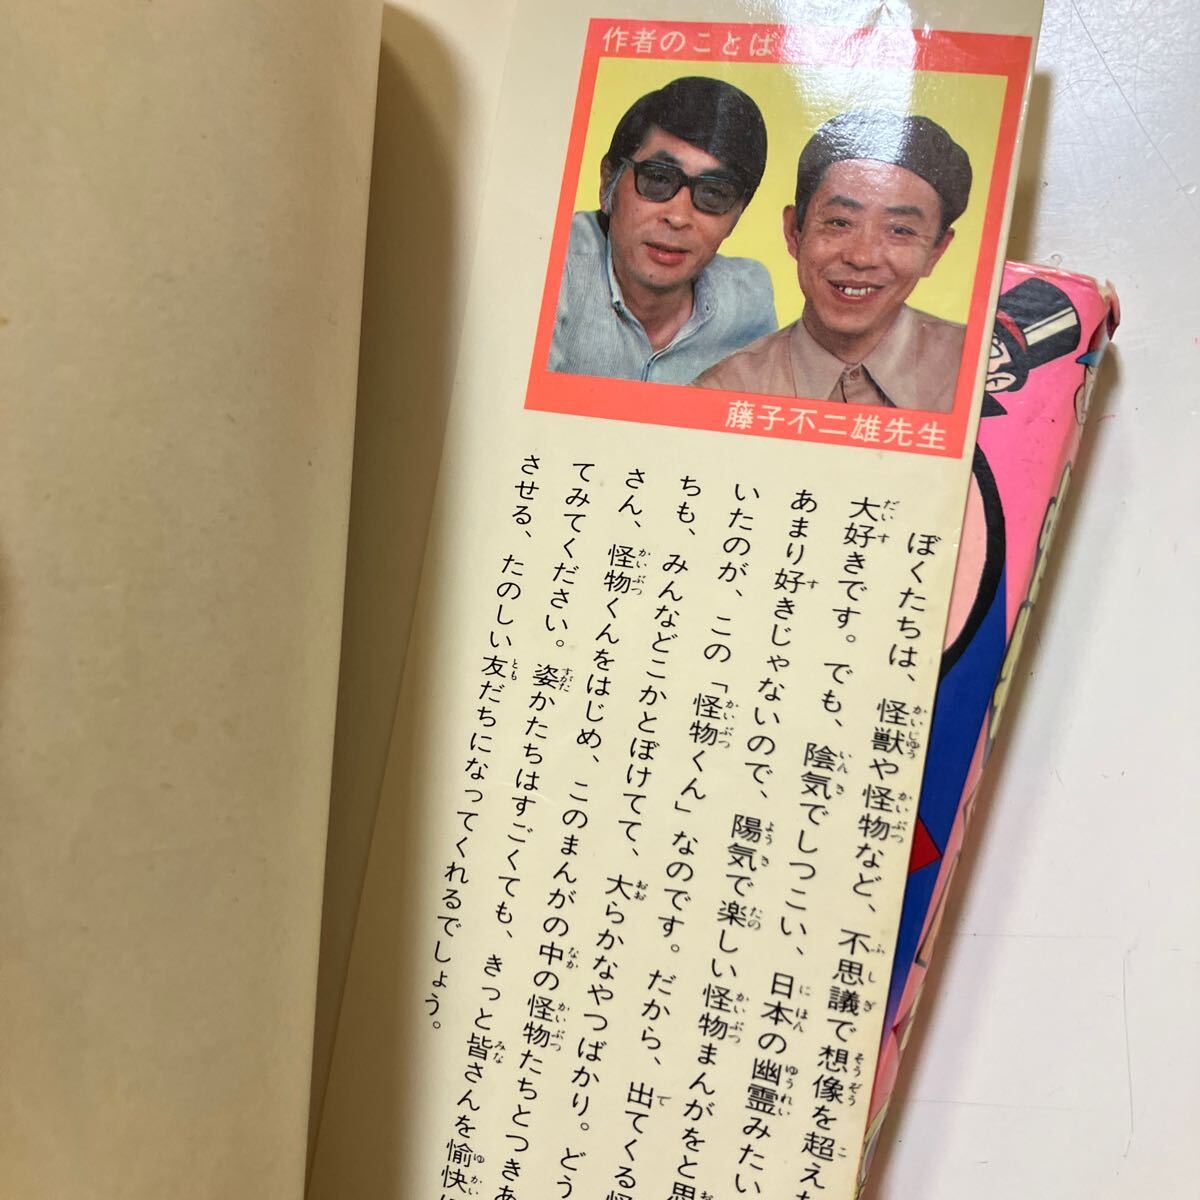 作者のことば
藤子不二雄先生
ぼくたちは、怪獣や怪物など、不思議で想像を超え
大好きです。でも、陰気でしつこい、日本の幽霊みたい
あまり好きじゃないので、陽気で楽しい怪物まんがをと思
いたのが、この「怪物くん」なのです。だから、出てくる怪
ちも、みんなどこかとぼけてて、大らかなやつばかり。どう
さん、怪物くんをはじめ、このまんがの中の怪物たちとつきあ
てみてください。姿かたちはすごくても、きっと皆さんを愉快に
させる、たのしい友だちになってくれるでしょう。